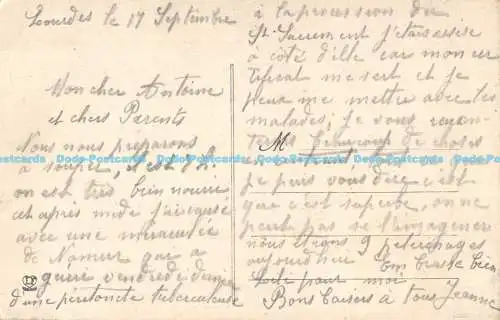 Lourdes le 17 Septembre
Mon cher Antoine
et chers Parents
Nous nous préparons
à souper, il est 7h.
on est très bien nourri
et après midi j'ai causé
avec une miraculée
de Namur qui a
guéri vendredi dernier
d'une péritonite tuberculeuse
à la procession du
St Sacrement j'étais assise
à côté d'elle car mon cer
tificat me sert et je
peux me mettre avec les
malades, je vous racon-
terai beaucoup de choses
en
je puis vous dire c'est
que c'est superbe, on ne
peut pas se l'imaginer
nous étions 9 pèlerinages
aujourd'hui
bien
pour moi
Bons baisers à tous Jeanne
M
Dodo-Postcards Dodo-Postcards Dodo-Postcards Dodo-Postcards Dodo-Postcards